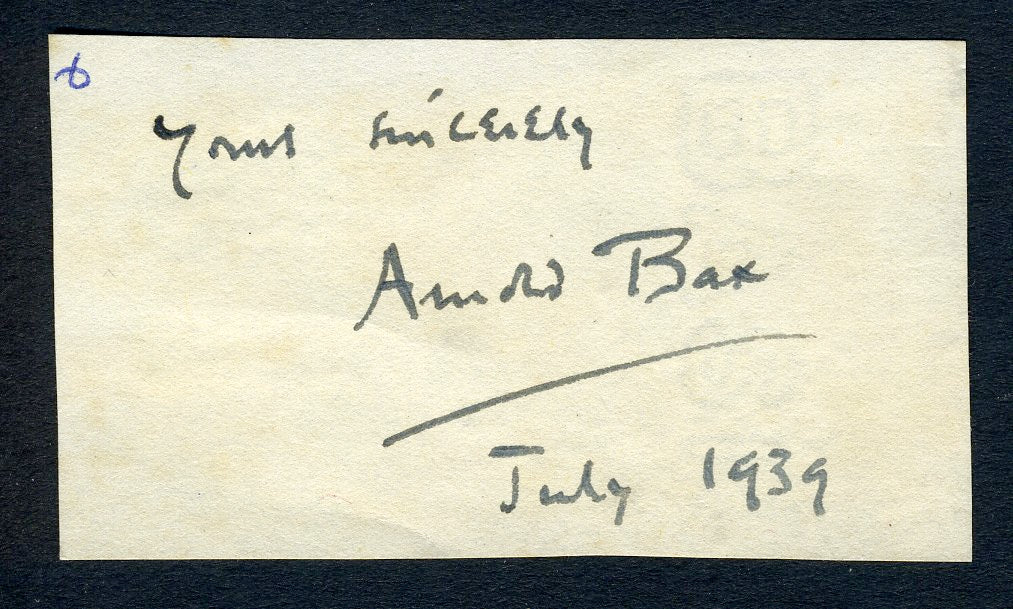 6
Yours sincerely
Arnold Bax
July 1939